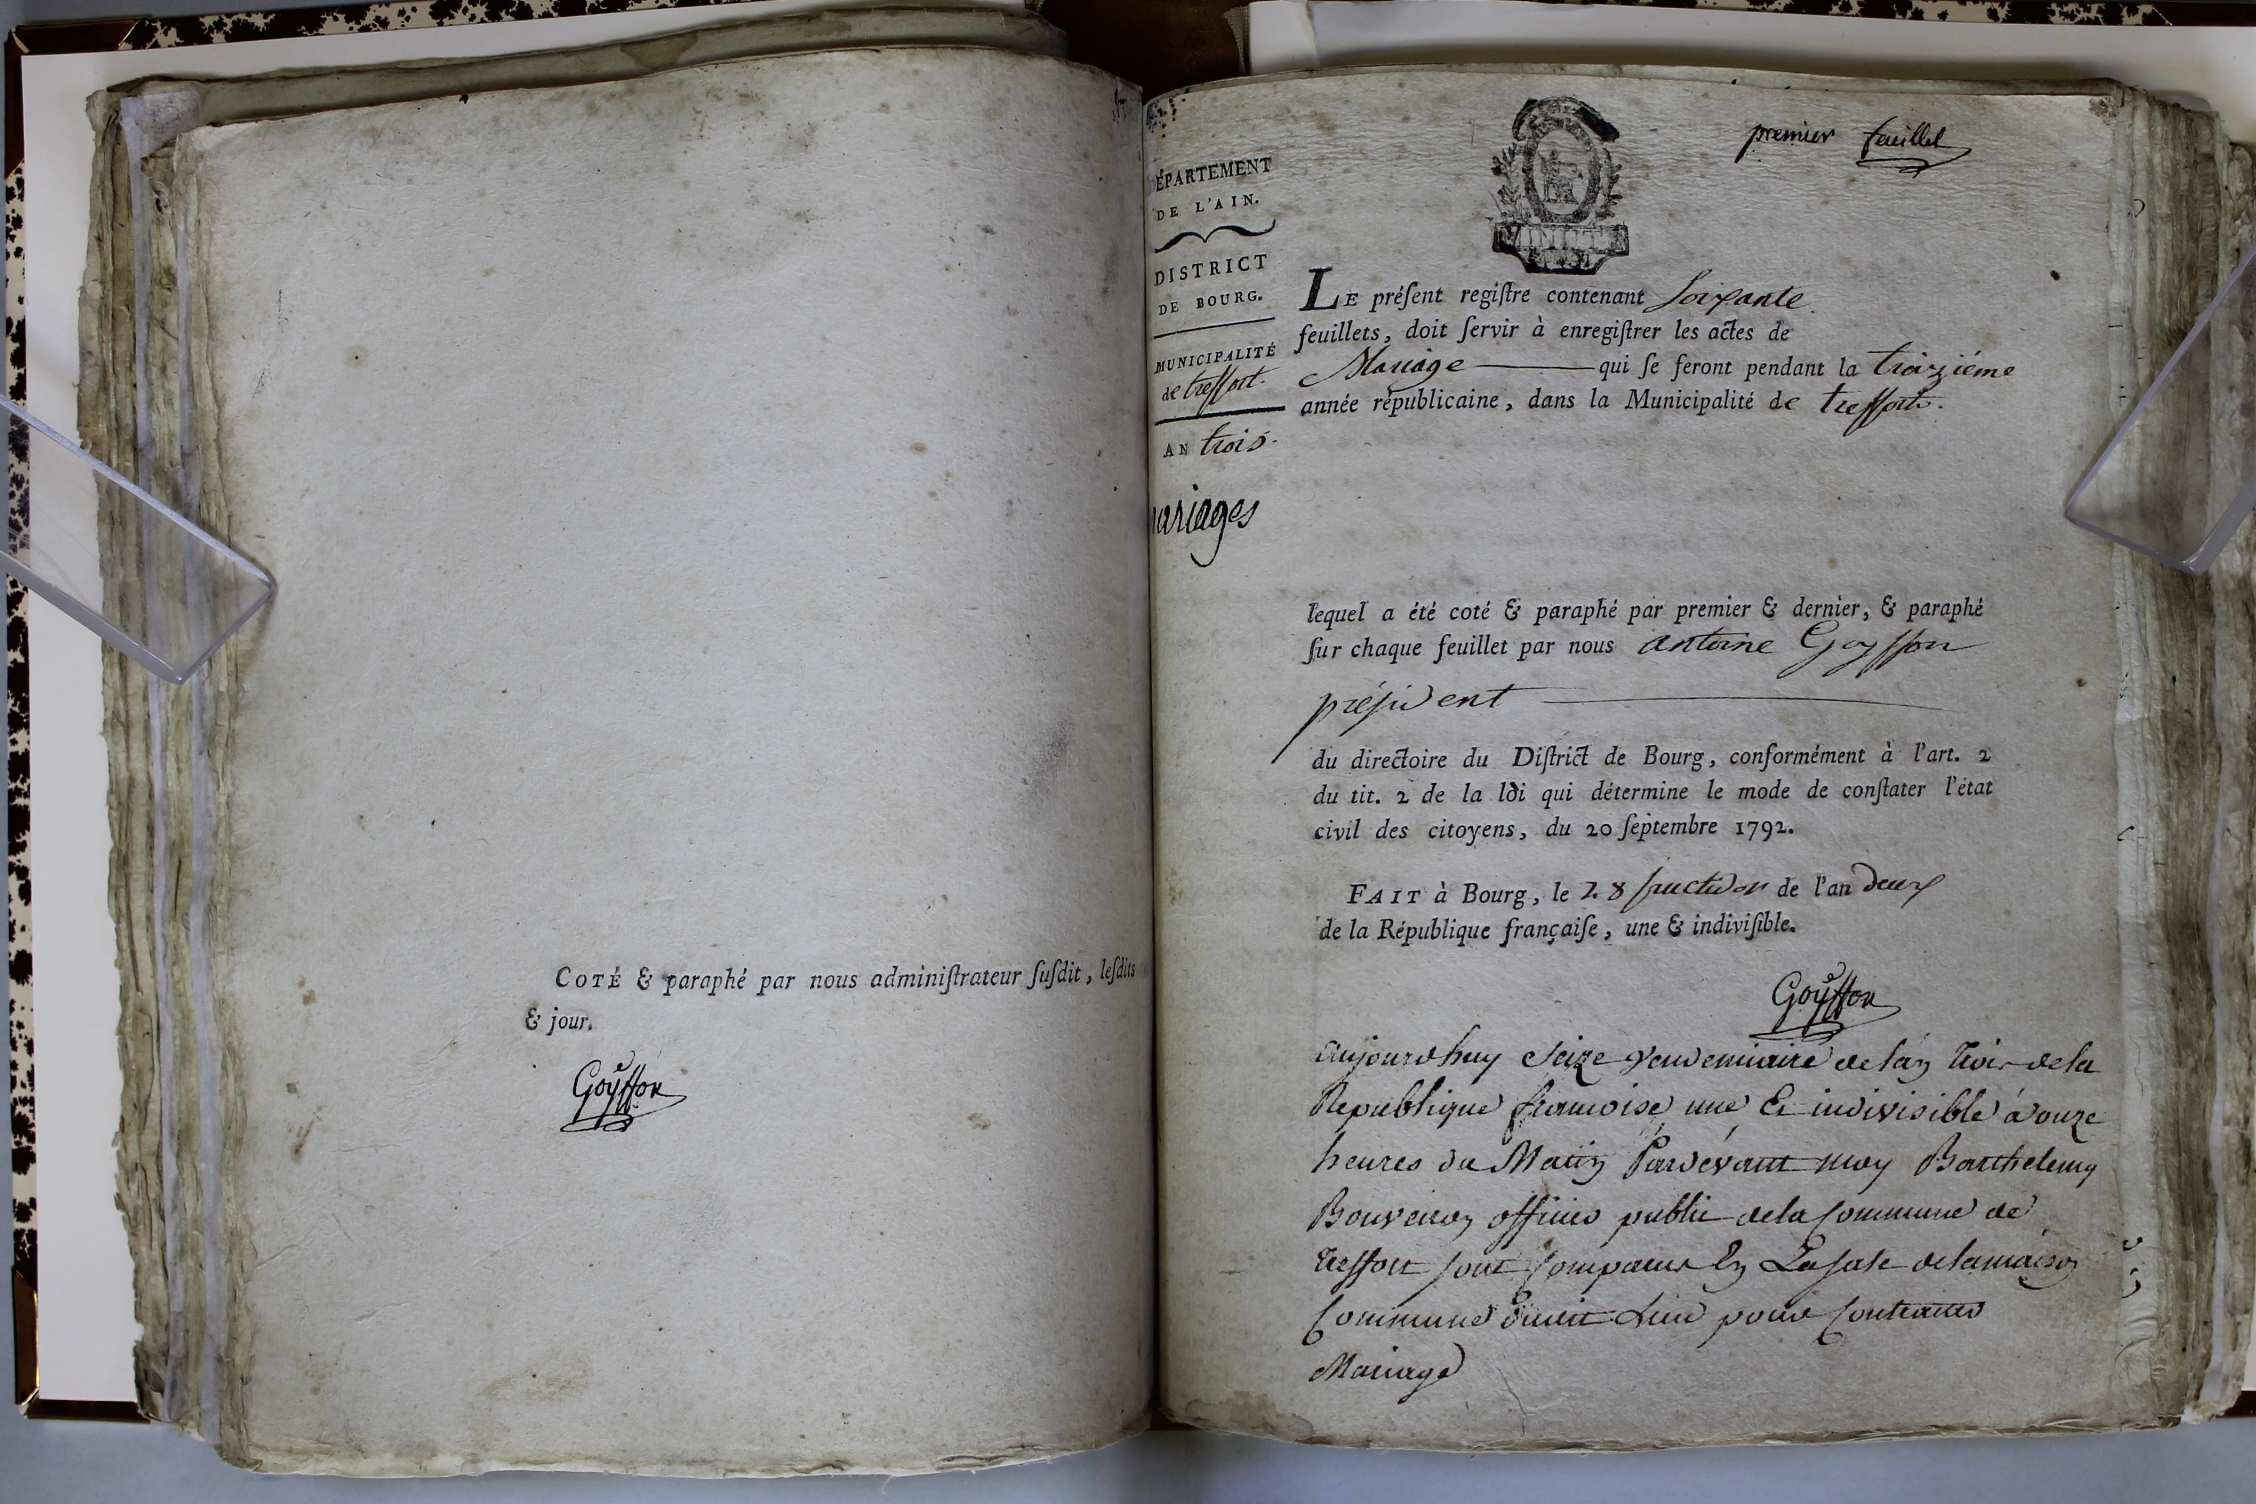 COTÉ & paraphé par nous adminiſtrateur ſuſdit, leſdits
& jour.
Goyffon
premier feuillet
ÉPARTEMENT
DE L'AIN.
DISTRICT
DE BOURG.
MUNICIPALITÉ
de treffort.
AN trois.
ariages
LE préſent regiſtre contenant Soixante
feuillets, doit ſervir à enregiſtrer les actes de
Mariage qui ſe feront pendant la troiziéme
année républicaine, dans la Municipalité de treffort.
lequel a été coté & paraphé par premier & dernier, & paraphé
ſur chaque feuillet par nous antoine Goyffon
préſident
du directoire du Diſtrict de Bourg, conformément à l'art. 2
du tit. 2 de la loi qui détermine le mode de conſtater l'état
civil des citoyens, du 20 ſeptembre 1792.
FAIT à Bourg, le 28 fructidor de l'an deux
de la République françaiſe, une & indiviſible.
Goyffon
Aujourdhuy Seize vendemiaire de lan trois de la
Republique francoise une Et indivisible à onze
heures du Matin Pardevant moy Barthelemy
Bouveron officier public de la Commune de
treffort sont Comparus En La sale de la maison
Commune dudit Lieu pour Contracter
Mariage